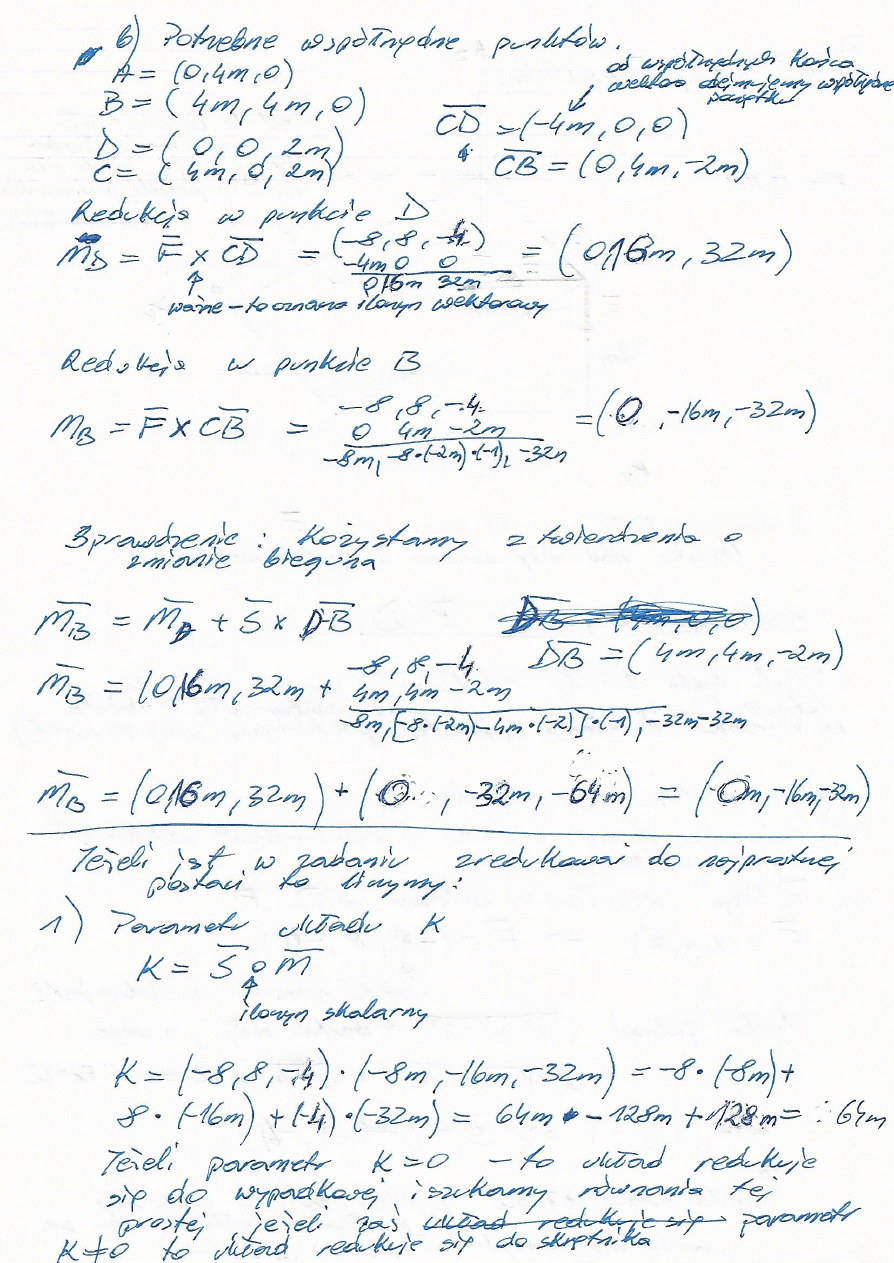 b) Potrzebne współrzędne punktów.
A = (0,4m,0)
B = (4m,4m,0)
D = (0,0,2m)
C = (4m,0,2m)
od współrzędnych końca
wektora odejmujemy współrzędne
początku
CD = (-4m,0,0)
CB = (0,4m,-2m)
Redukcja w punkcie D
M_D = F x CD = (-8,8,-4) = (0,16m,32m)
-4m 0 0
0,16m 32m
ważne - to oznacza iloczyn wektorowy
Redukcja w punkcie B
M_B = F x CB = -8,8,-4 = (0,-16m,-32m)
0 4m -2m
-8m, -8·(-2m)·(-1), -32m
Sprawdzenie: Kożystamy z twierdzenia o
zmianie bieguna
M_B = M_D + S x DB
DB = (4m,4m,-2m)
M_B = (0,16m,32m + -8,8,-4
4m,4m -2m
-8m,[-8·(-2m)-4m·(-2)]·(-1),-32m-32m
M_B = (0,16m,32m) + (0, -32m, -64m) = (-0m,-16m,-32m)
Jeżeli jest w zadaniu zredukować do najprostszej
postaci to liczymy:
1) Parametr układu K
K = S ∘ M
iloczyn skalarny
K = (-8,8,-4) · (-8m,-16m,-32m) = -8·(-8m)+
8·(-16m)+(-4)·(-32m) = 64m - 128m + 128m = 64m
Jeżeli parametr K=0 - to układ redukuje
się do wypadkowej i szukamy równania tej
prostej jeżeli zaś układ redukuje się parametr
K≠0 to układ redukuje się do skrętnika